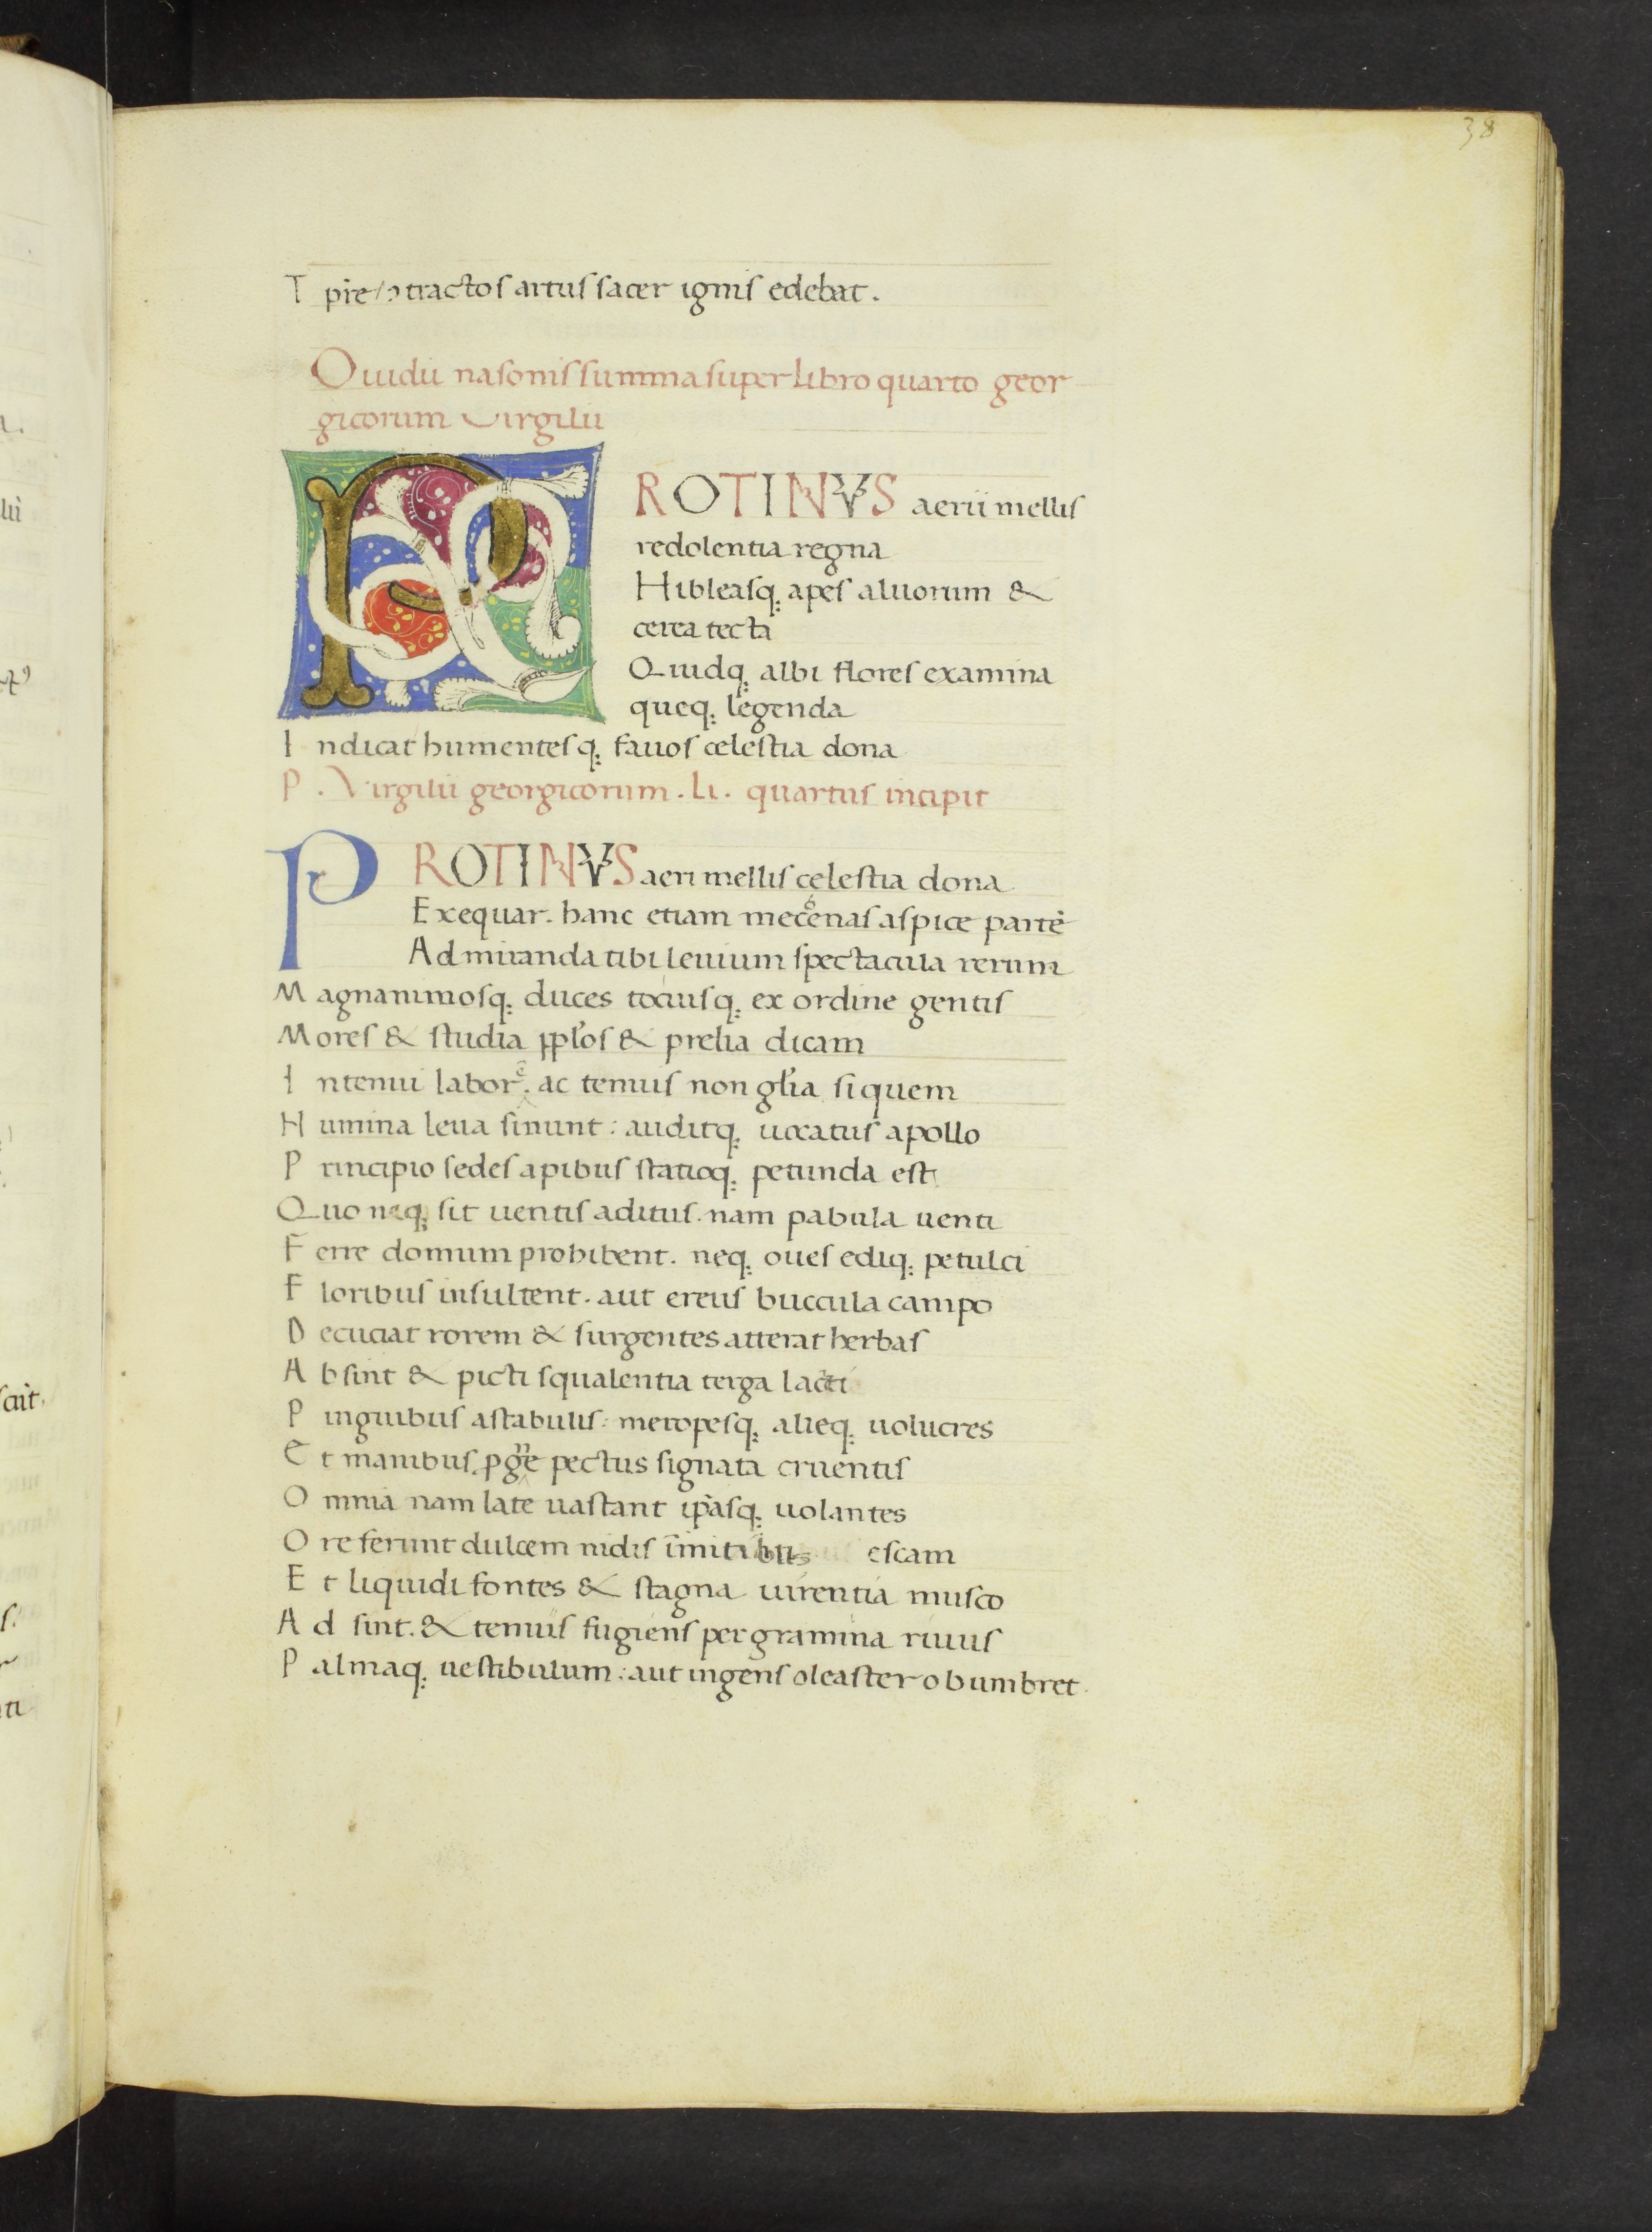 38
T pre tractos artus sacer ignis edebat.
Ouidii nasonis summa super libro quarto geor
gicorum Virgilii
PROTINVS aerii mellis
redolentia regna
Hibleasq; apes aluorum &
cerea tecta
Quidq; albi flores examina
queq; legenda
Indicat humentesq; fauos celestia dona
P. Virgilii georgicorum. Li. quartus incipit
PROTINVS aeri mellis celestia dona
Exequar. hanc etiam mecenas aspice partē
Admiranda tibi leuium spectacula rerum
Magnanimosq; duces tociusq; ex ordine gentis
Mores & studia pp̄los & prelia dicam
In tenui labor ē. ac tenuis non gl̄ia si quem
Numina leua sinunt: auditq; uocatus apollo
Principio sedes apibus statioq; petunda est
Quo neq; sit uentis aditus. nam pabula uenti
Ferre domum prohibent. neq; oues ediq; petulci
Floribus insultent. aut ereus buccula campo
Decuciat rorem & surgentes atterat herbas
Absint & picti squalentia terga lacerti
Pinguibus astabulis: meropesq; alieq; uolucres
Et manibus pgne pectus signata cruentis
Omnia nam late uastant ip̄asq; uolantes
Ore ferunt dulcem nidis īmitibus escam
Et liquidi fontes & stagna uirentia musco
Ad sint. & tenuis fugiens per gramina riuus
Palmaq; uestibulum: aut ingens oleaster obumbret.